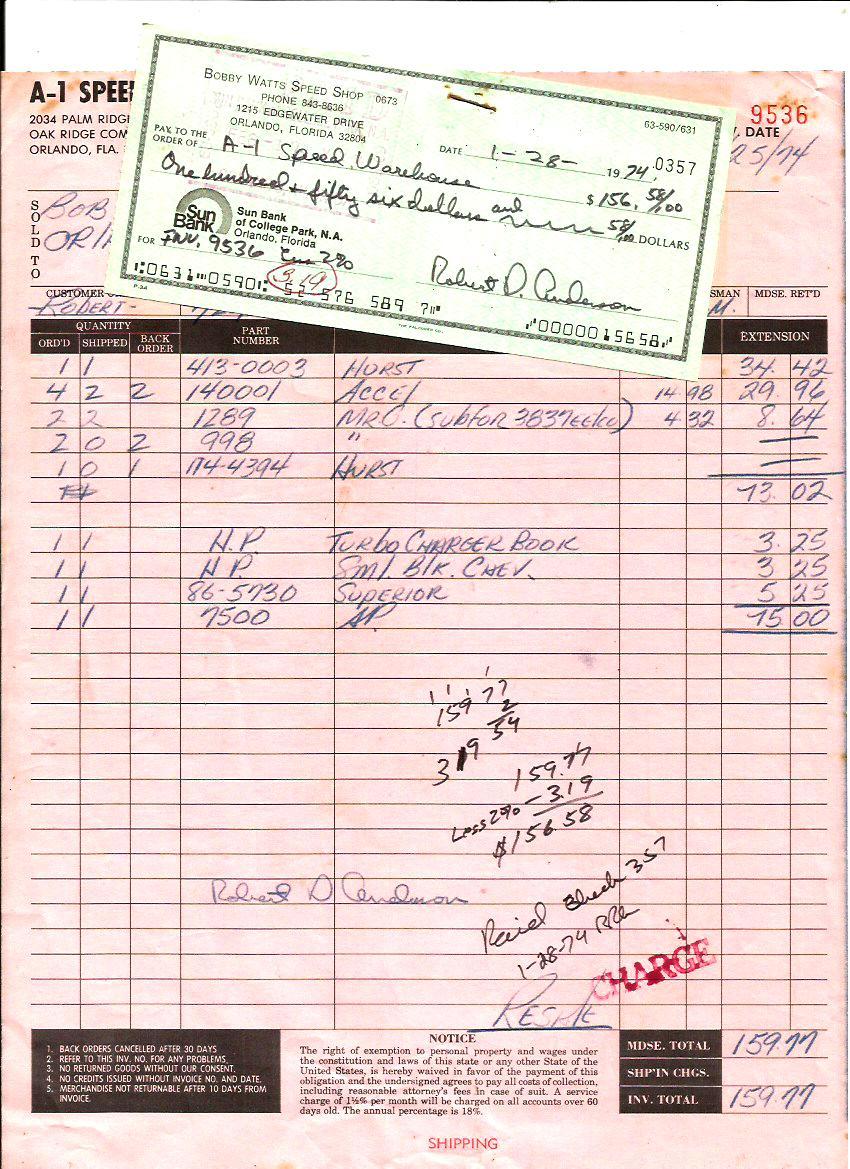 BOBBY WATTS SPEED SHOP 0673
PHONE 843-8636
1215 EDGEWATER DRIVE
ORLANDO, FLORIDA 32804
63-590/631
PAY TO THE
ORDER OF A-1 Speed Warehouse
DATE 1-28- 1974 0357
One hundred + fifty six dollars and 58/00 DOLLARS
$ 156.58/00
Sun
Bank
Sun Bank
of College Park, N.A.
Orlando, Florida
FOR INV. 9536 Less 2%
3.19
Robert D. Anderson
0631 0590 576 589 7
0000015658
THE PALTOMER CO.
A-1 SPEE
2034 PALM RIDG
OAK RIDGE COM
ORLANDO, FLA.
9536
DATE
25/74
SOLD TO
BOB
ORLA
CUSTOMER
ROBERT-
SMAN MDSE. RET'D
M.
QUANTITY
ORD'D SHIPPED BACK ORDER PART NUMBER EXTENSION
1 1 413-0003 HURST 34.42
4 2 2 140001 ACCEL 14 98 29.96
2 2 1289 MR.G. (SUB FOR 3837 4.32 8.64
2 0 2 998 "
1 0 1 174-4394 HURST
73.02
1 1 H.P. TURBO CHARGER BOOK 3.25
1 1 H.P. Sml. Blk. CHEV. 3 25
1 1 86-5730 SUPERIOR 5 25
1 1 7500 AP 75 00
159 77
2
54
3 19
159.77
Less 2% - 3.19
$156.58
Robert D Anderson
Paid Check 357
1-28-74
CHARGE
1. BACK ORDERS CANCELLED AFTER 30 DAYS
2. REFER TO THIS INV. NO. FOR ANY PROBLEMS.
3. NO RETURNED GOODS WITHOUT OUR CONSENT.
4. NO CREDITS ISSUED WITHOUT INVOICE NO. AND DATE.
5. MERCHANDISE NOT RETURNABLE AFTER 10 DAYS FROM
INVOICE.
NOTICE
The right of exemption to personal property and wages under
the constitution and laws of this state or any other State of the
United States, is hereby waived in favor of the payment of this
obligation and the undersigned agrees to pay all costs of collection,
including reasonable attorney's fees in case of suit. A service
charge of 1½% per month will be charged on all accounts over 60
days old. The annual percentage is 18%.
MDSE. TOTAL 159.77
SHP'IN CHGS.
INV. TOTAL 159.77
SHIPPING